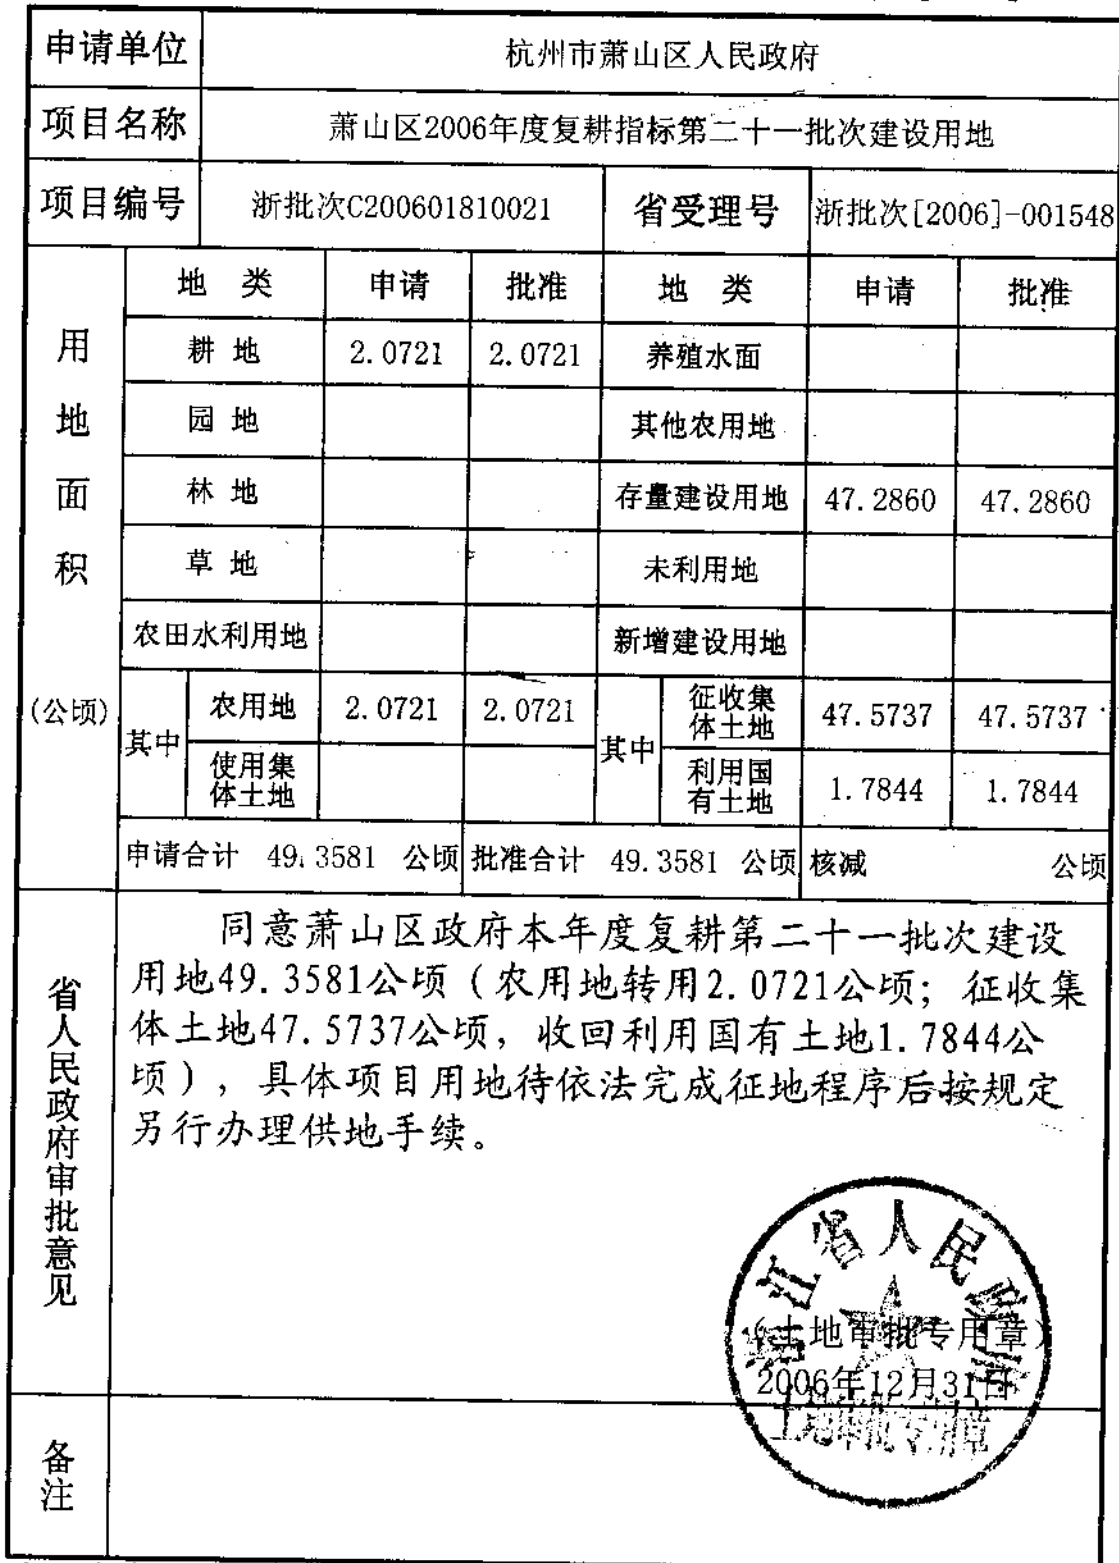 申请单位 杭州市萧山区人民政府
项目名称 萧山区2006年度复耕指标第二十一批次建设用地
项目编号 浙批次C200601810021 省受理号 浙批次[2006]-001548
用地面积(公顷)
地 类 申请 批准 地 类 申请 批准
耕 地 2.0721 2.0721 养殖水面
园 地 其他农用地
林 地 存量建设用地 47.2860 47.2860
草 地 未利用地
农田水利用地 新增建设用地
其中 农用地 2.0721 2.0721 其中 征收集体土地 47.5737 47.5737
使用集体土地 利用国有土地 1.7844 1.7844
申请合计 49.3581 公顷 批准合计 49.3581 公顷 核减 公顷
省人民政府审批意见
同意萧山区政府本年度复耕第二十一批次建设
用地49.3581公顷（农用地转用2.0721公顷；征收集
体土地47.5737公顷，收回利用国有土地1.7844公
顷），具体项目用地待依法完成征地程序后按规定
另行办理供地手续。
浙江省人民政府
（土地审批专用章）
2006年12月31日
土地审批专用章
备注